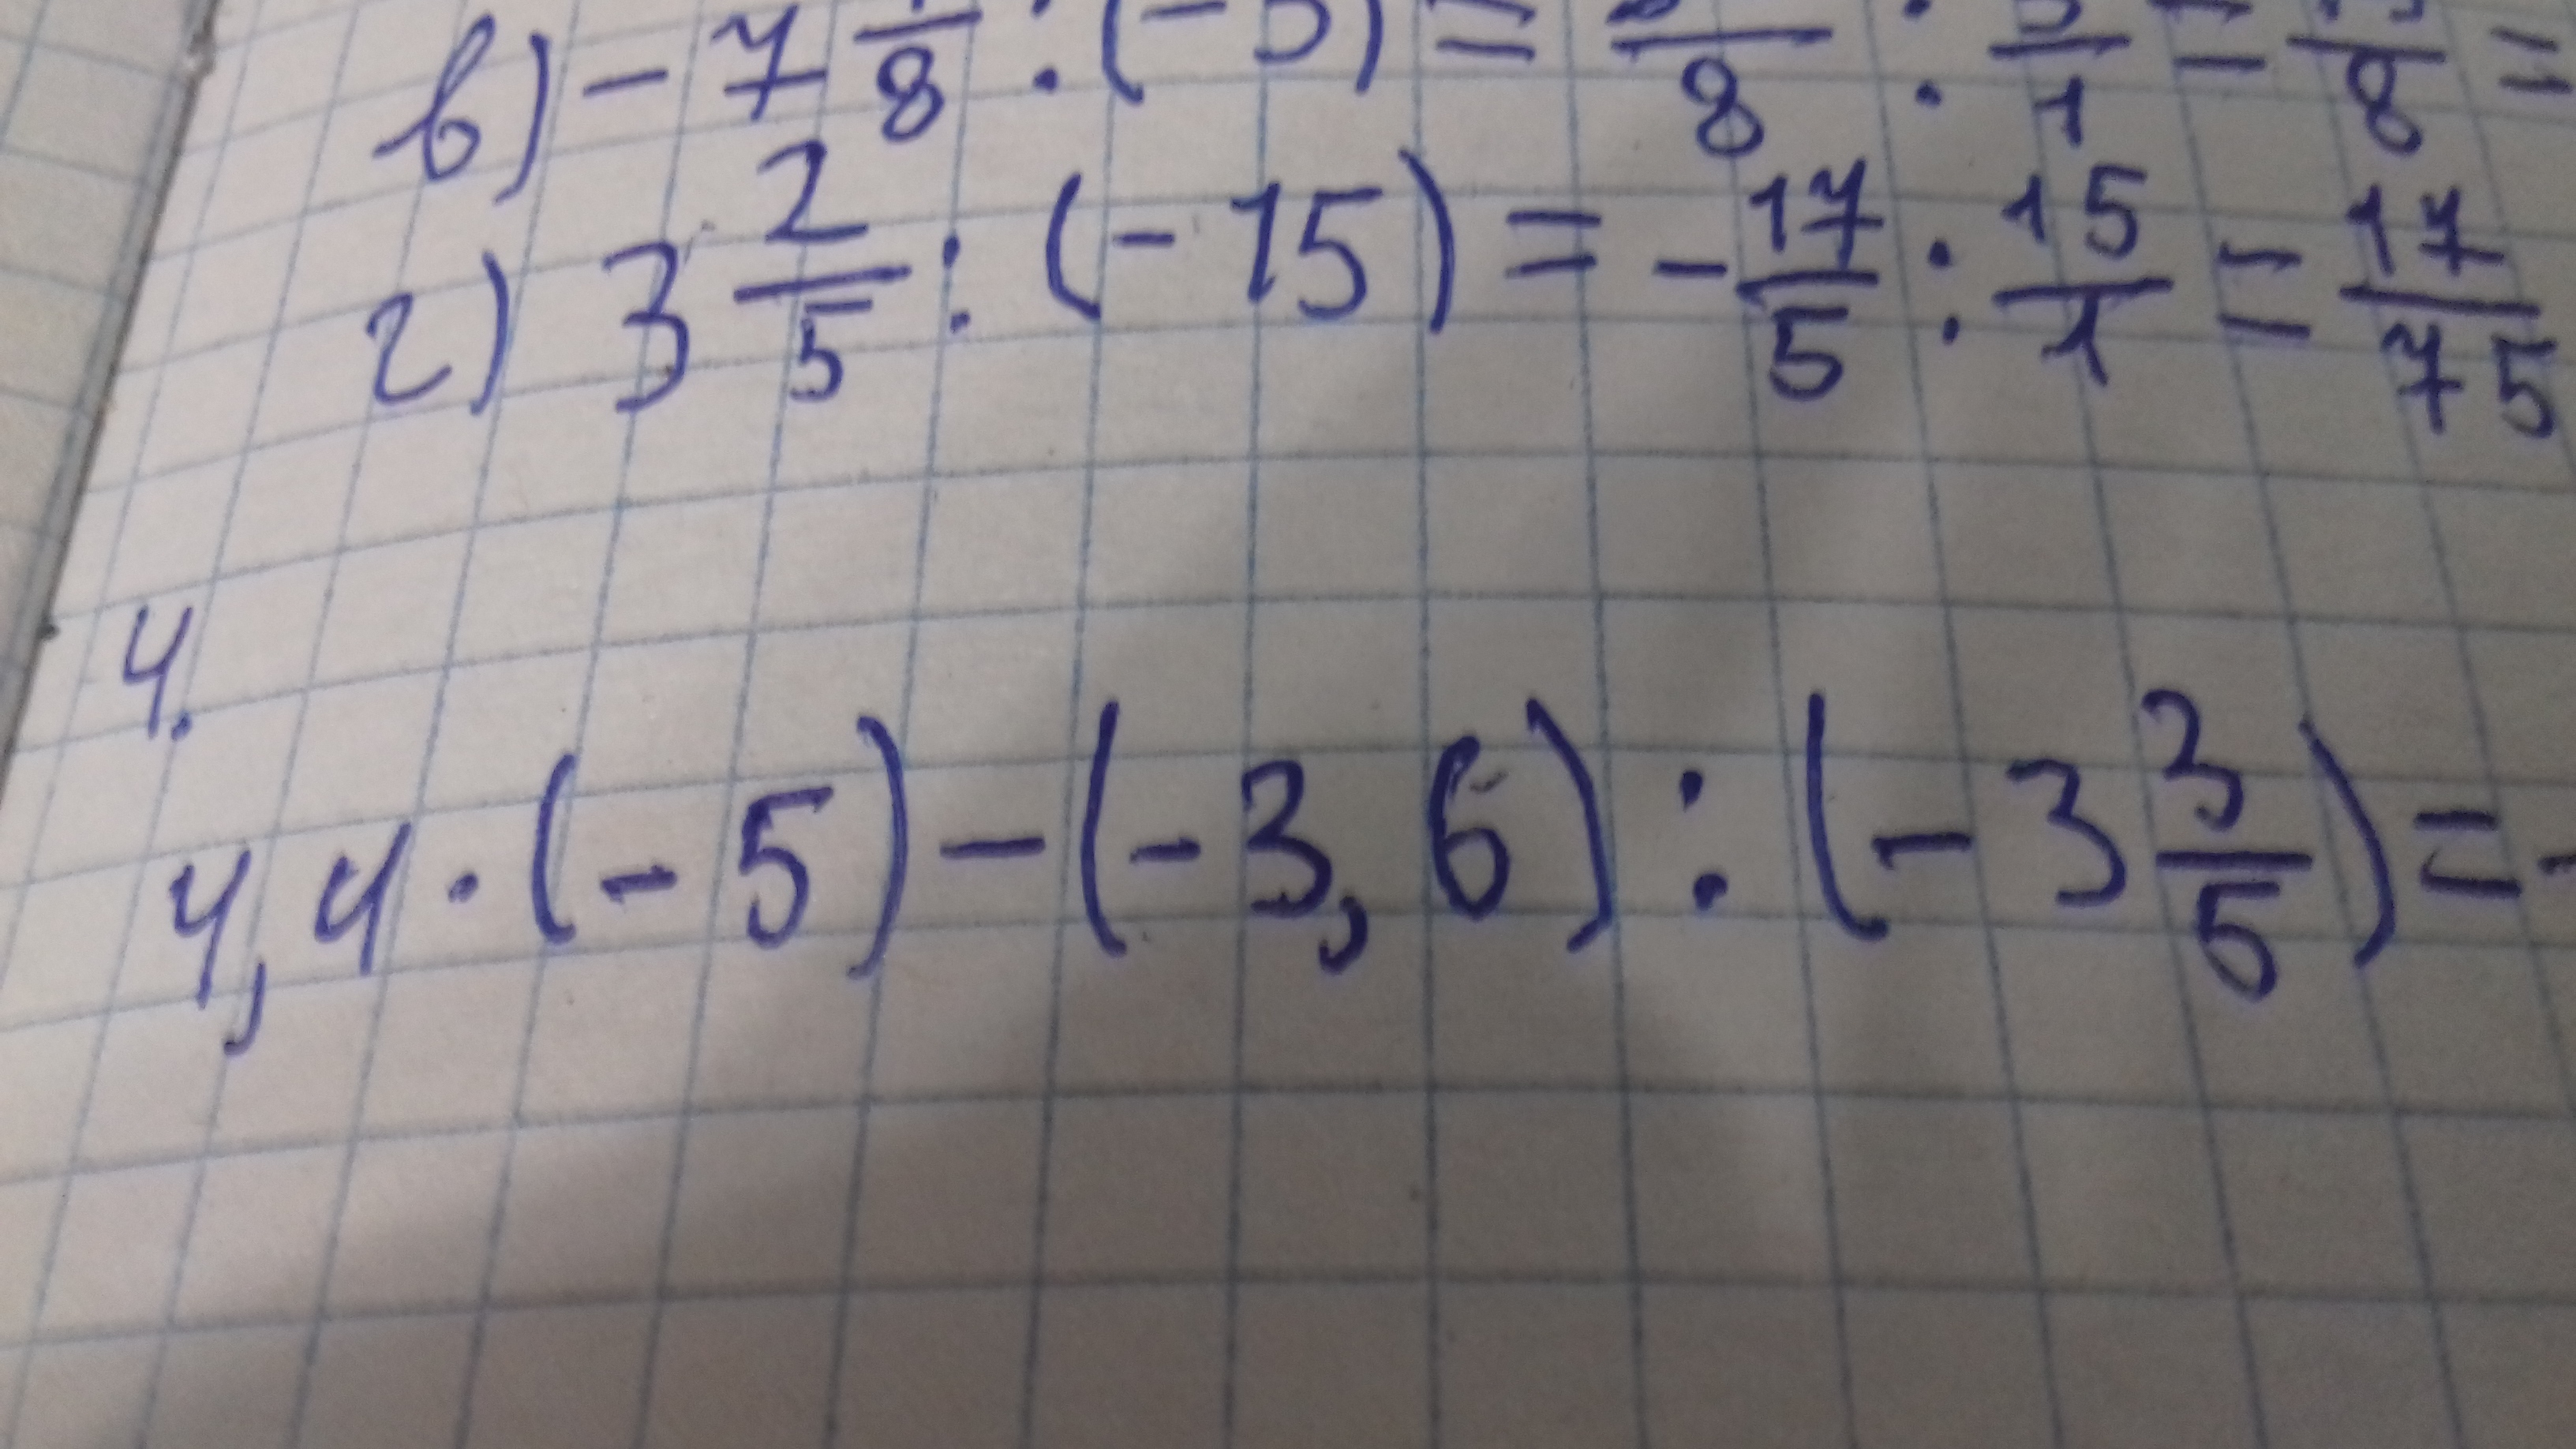 в) -7 /8 : (-5) = /8 : /1 = /8 =
г) 3 2/5 : (-15) = -17/5 : 15/1 = 17/75
4.
4,4 · (-5) - (-3,6) : (-3 3/5) = -